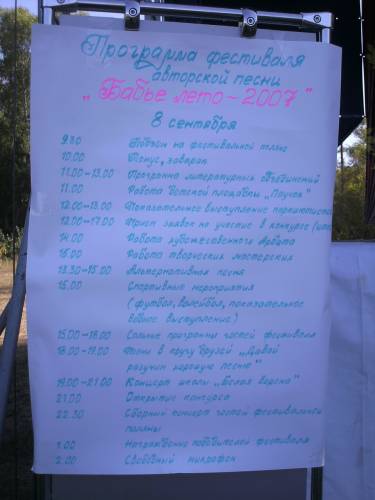 Программа фестиваля
авторской песни
„Бабье лето-2007"
8 сентября
9.30 на фестивальной поляне
10.00
11.00-13.00 Программа литературных объединений
11.00 Работа детской площадки
12.00-13.00 Показательное выступление
12.00-17.00 Прием заявок на участие в конкурсе
14.00 Работа художественного Арбата
15.00 Работа творческих мастерских
13.30-15.00 Альтернативная песня
15.00 Спортивные мероприятия
(футбол, волейбол, показательное
выступление)
15.00-18.00 Сольные программы гостей фестиваля
18.00-19.00 Песни в кругу друзей „Давай
разучим хорошую песню"
19.00-21.00 Концерт школы „Белая ворона"
21.00 Открытие конкурса
22.30 Сборный концерт гостей фестивальной
поляны
1.00 Награждение победителей фестиваля
2.00 Свободный микрофон